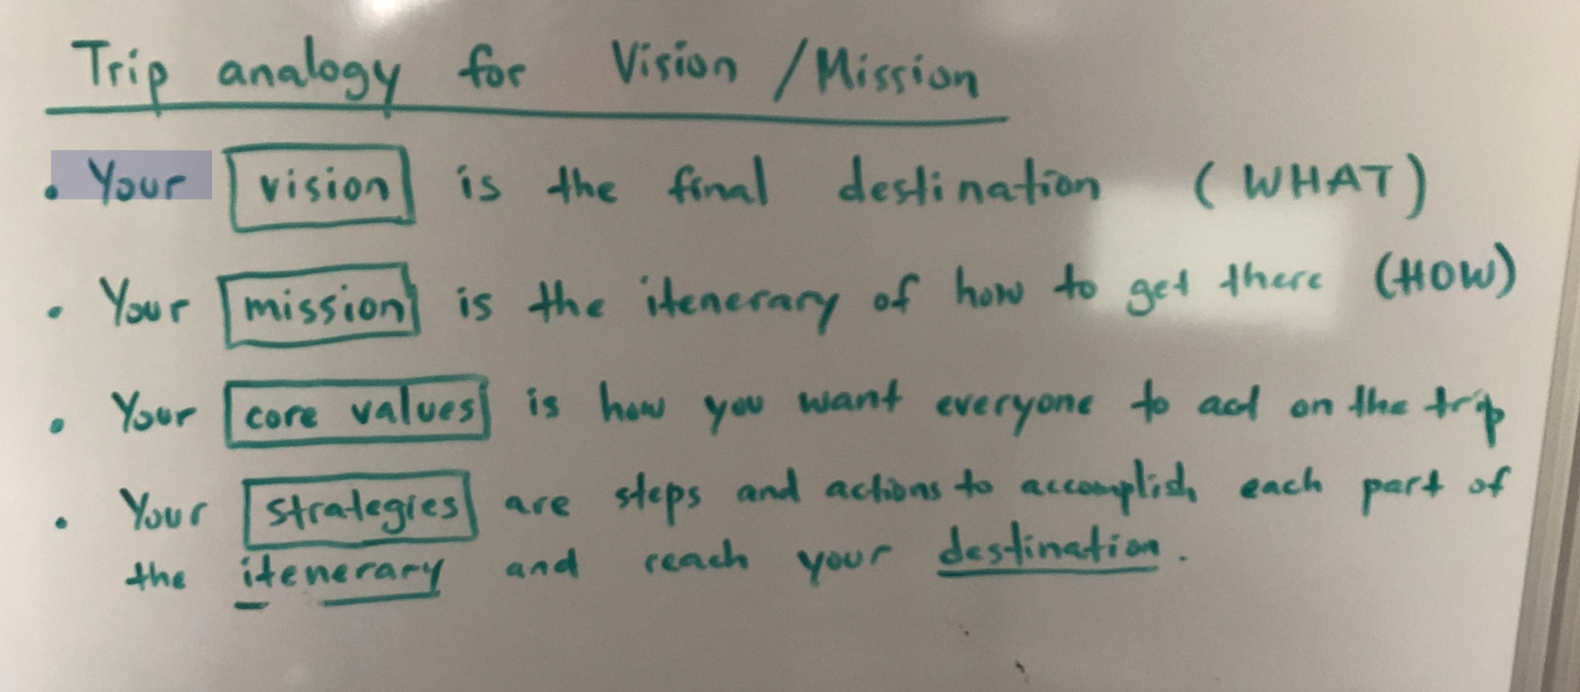 Trip analogy for Vision / Mission
• Your vision is the final destination (WHAT)
• Your mission is the itenerary of how to get there (HOW)
• Your core values is how you want everyone to act on the trip
• Your strategies are steps and actions to accomplish each part of
the itenerary and reach your destination.